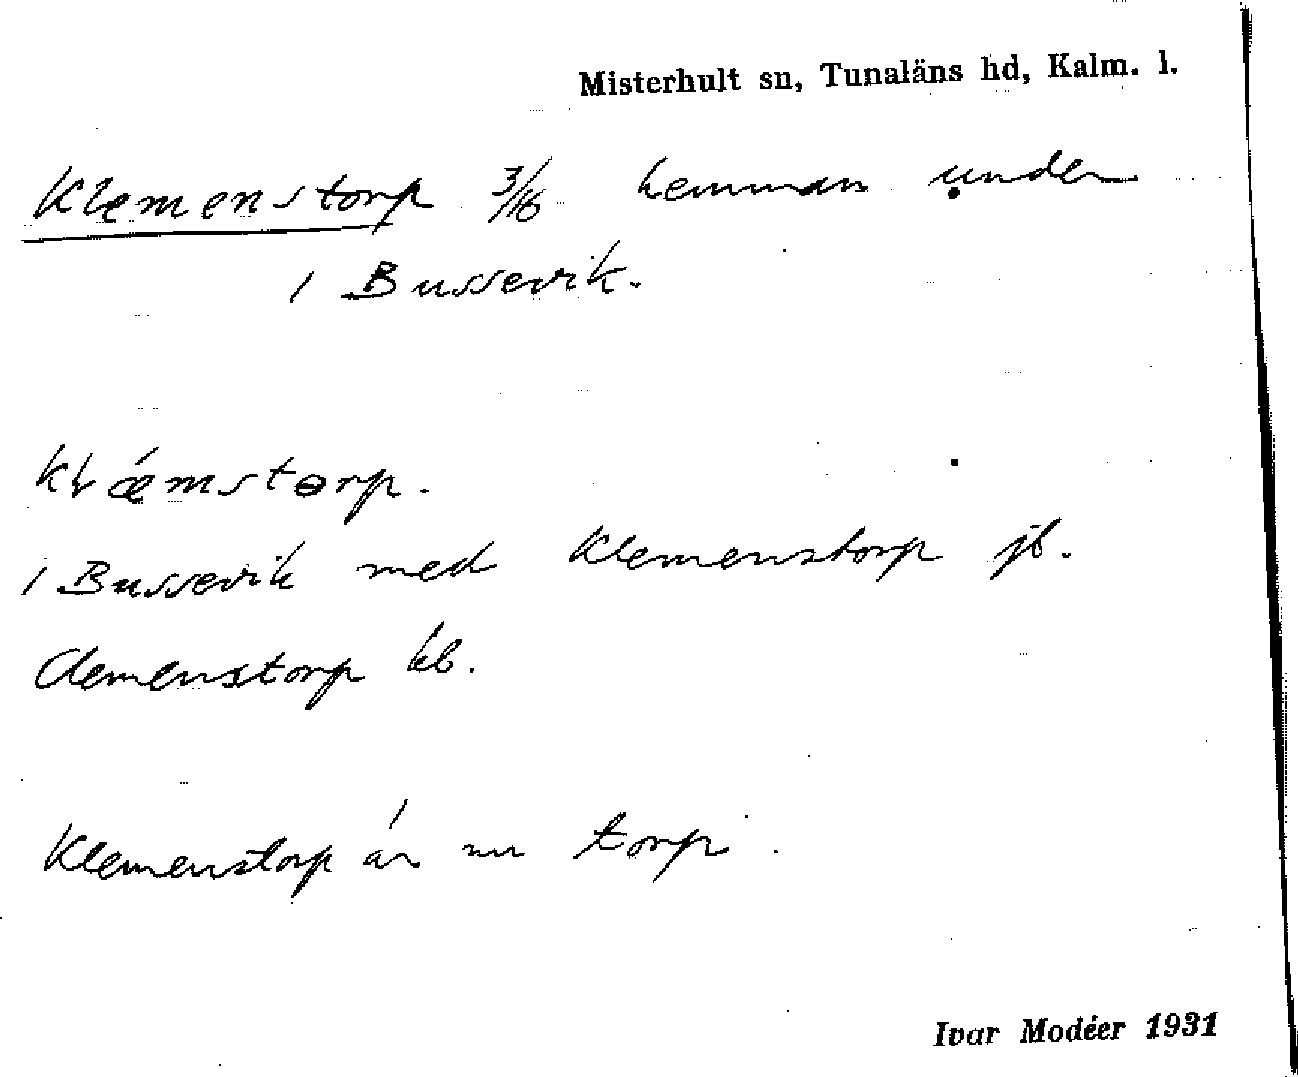 Misterhult sn, Tunaläns hd, Kalm. l.
Klemenstorp 3/16 hemman under
1 Bussevik.
klǽmstorp.
1 Bussevik med Klemenstorp jb.
Clemenstorp kb.
Klemenstorp är nu torp.
Ivar Modéer 1931